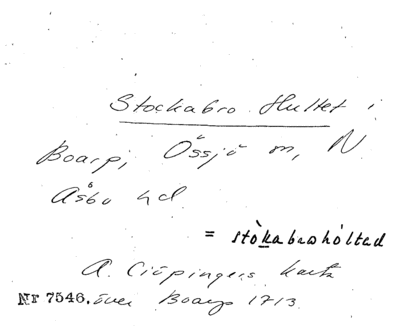 Stockabro Hultet i
Boarp, Össjö sn, N
Åsbo hd
= stòkabrohòltad
A. Ciöpingers karta
Nr 7546. över Boarp 1713